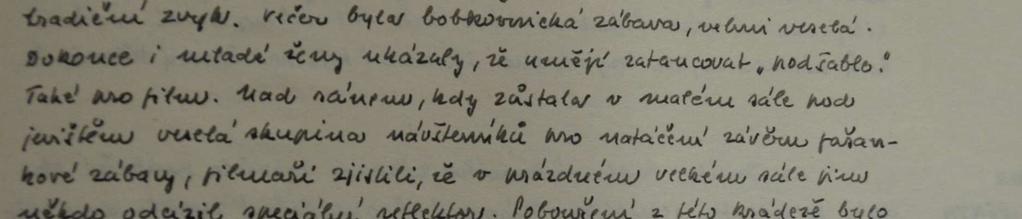 tradiční zvyk. Večer byla bobkovnická zábava, velmi veselá.
Dokonce i mladé ženy ukázaly, že umějí zatancovat „pod šable."
Také pro film. Nad ránem, kdy zůstala v malém sále pod
jevištěm veselá skupina návštěvníků pro natáčení závěru fašan-
kové zábavy, filmaři zjistili, že v prázdném velkém sále jim
někdo odcizil speciální reflektor. Pobouření z této krádeže bylo